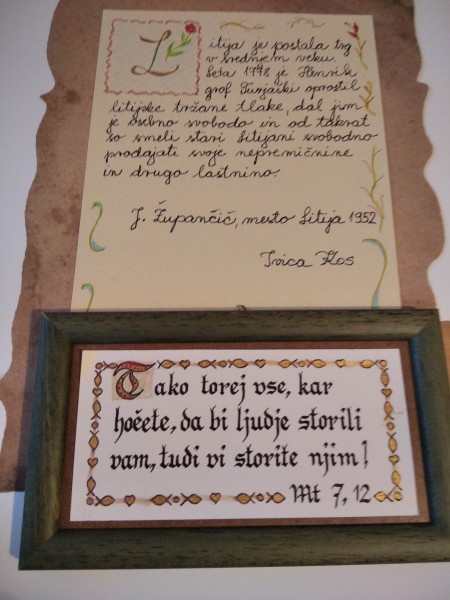 Litija je postala trg
v srednjem veku.
Leta 1778 je Henrik
grof Turjaški oprostil
litijske tržane tlake, dal jim
je osebno svobodo in od takrat
so smeli stari Litijani svobodno
prodajati svoje nepremičnine
in drugo lastnino.
J. Župančič, mesto Litija 1952
Ivica Kos
Tako torej vse, kar
hočete, da bi ljudje storili
vam, tudi vi storite njim!
Mt 7, 12